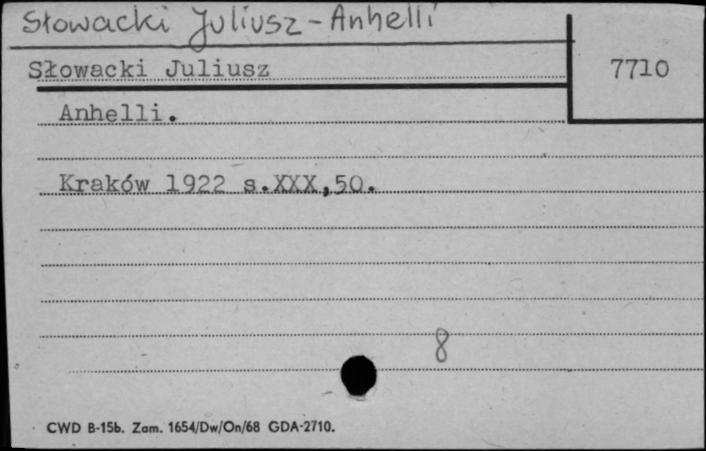 Słowacki Juliusz - Anhelli
Słowacki Juliusz
7710
Anhelli.
Kraków 1922 s.XXX,50.
8
CWD B-15b. Zam. 1654/Dw/On/68 GDA-2710.